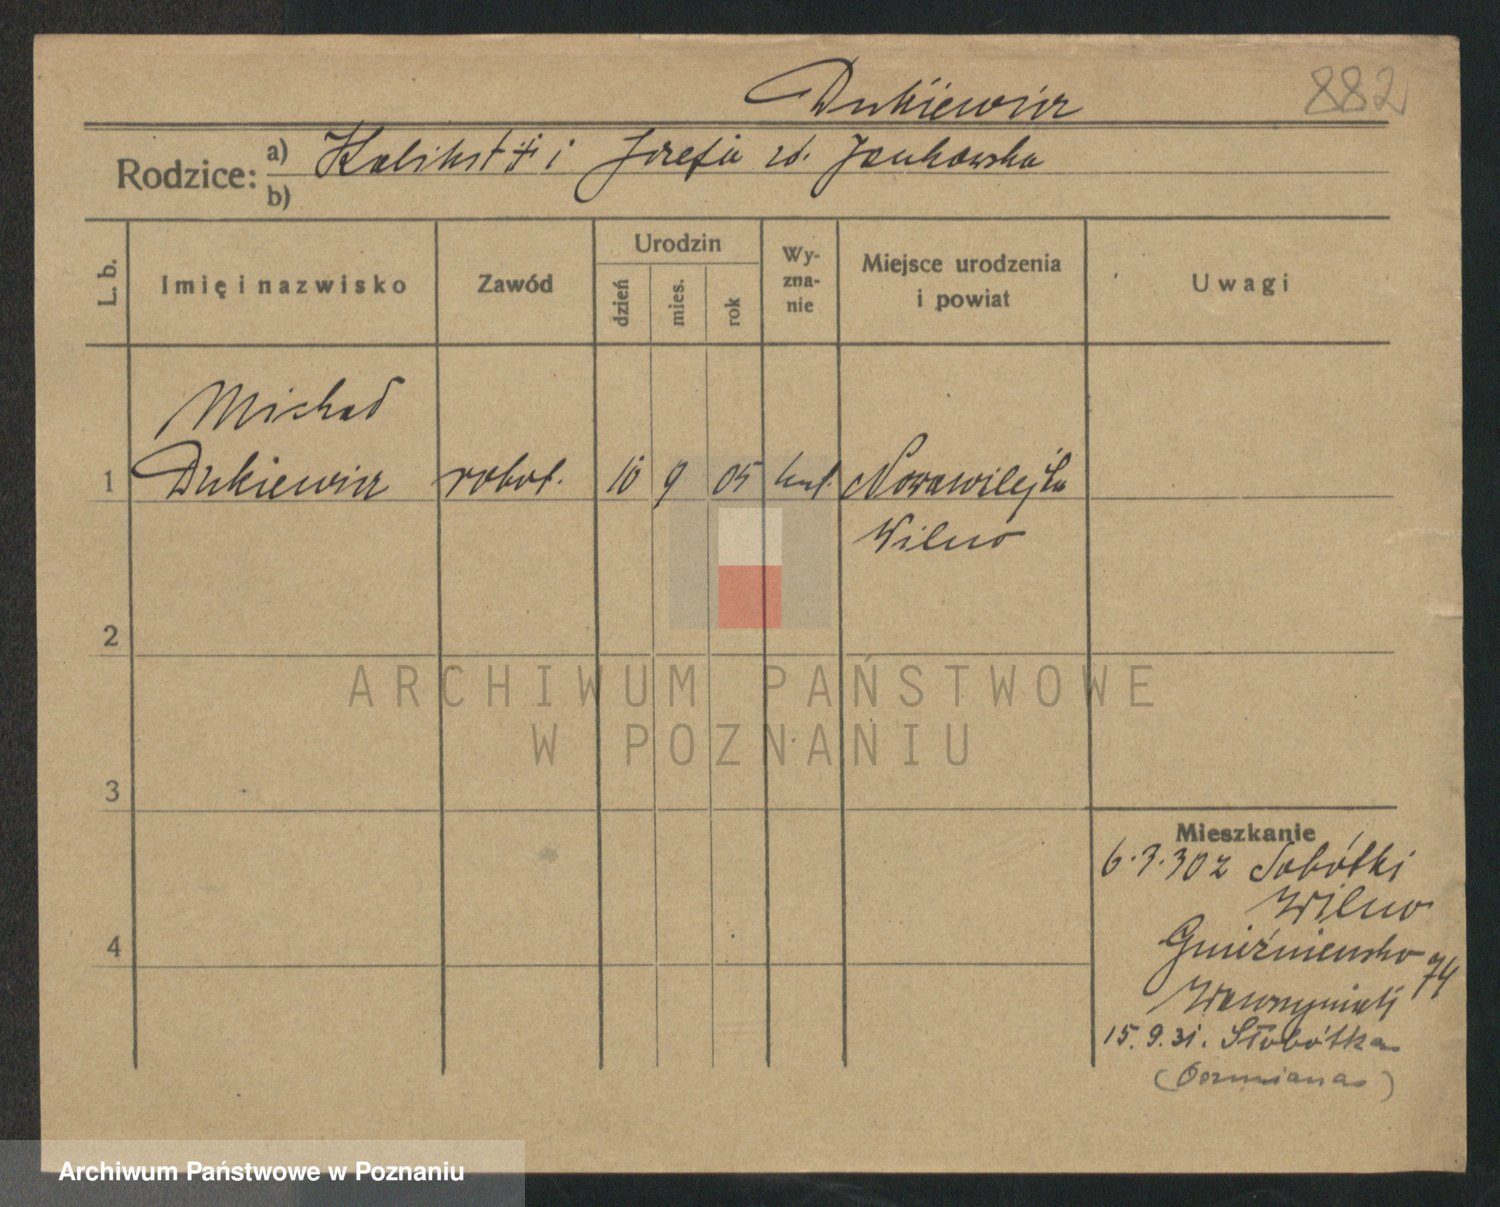 Dukiewicz
882
Rodzice: a) Kalikst ‡ i Józefa zd. Jankowska
b)
L. b.
Imię i nazwisko
Zawód
Urodzin
dzień
mies.
rok
Wy-
zna-
nie
Miejsce urodzenia
i powiat
Uwagi
Michał
1 Dukiewicz robot. 10 9 05 kat. Nowawilejka
Wilno
2
ARCHIWUM PAŃSTWOWE
W POZNANIU
3
Mieszkanie
6.3.30 z Sobótki
Wilno
4
Gnieźnieńska 74
Wawrzyniak
15.9.31. Słobótka
(Oszmiana)
Archiwum Państwowe w Poznaniu